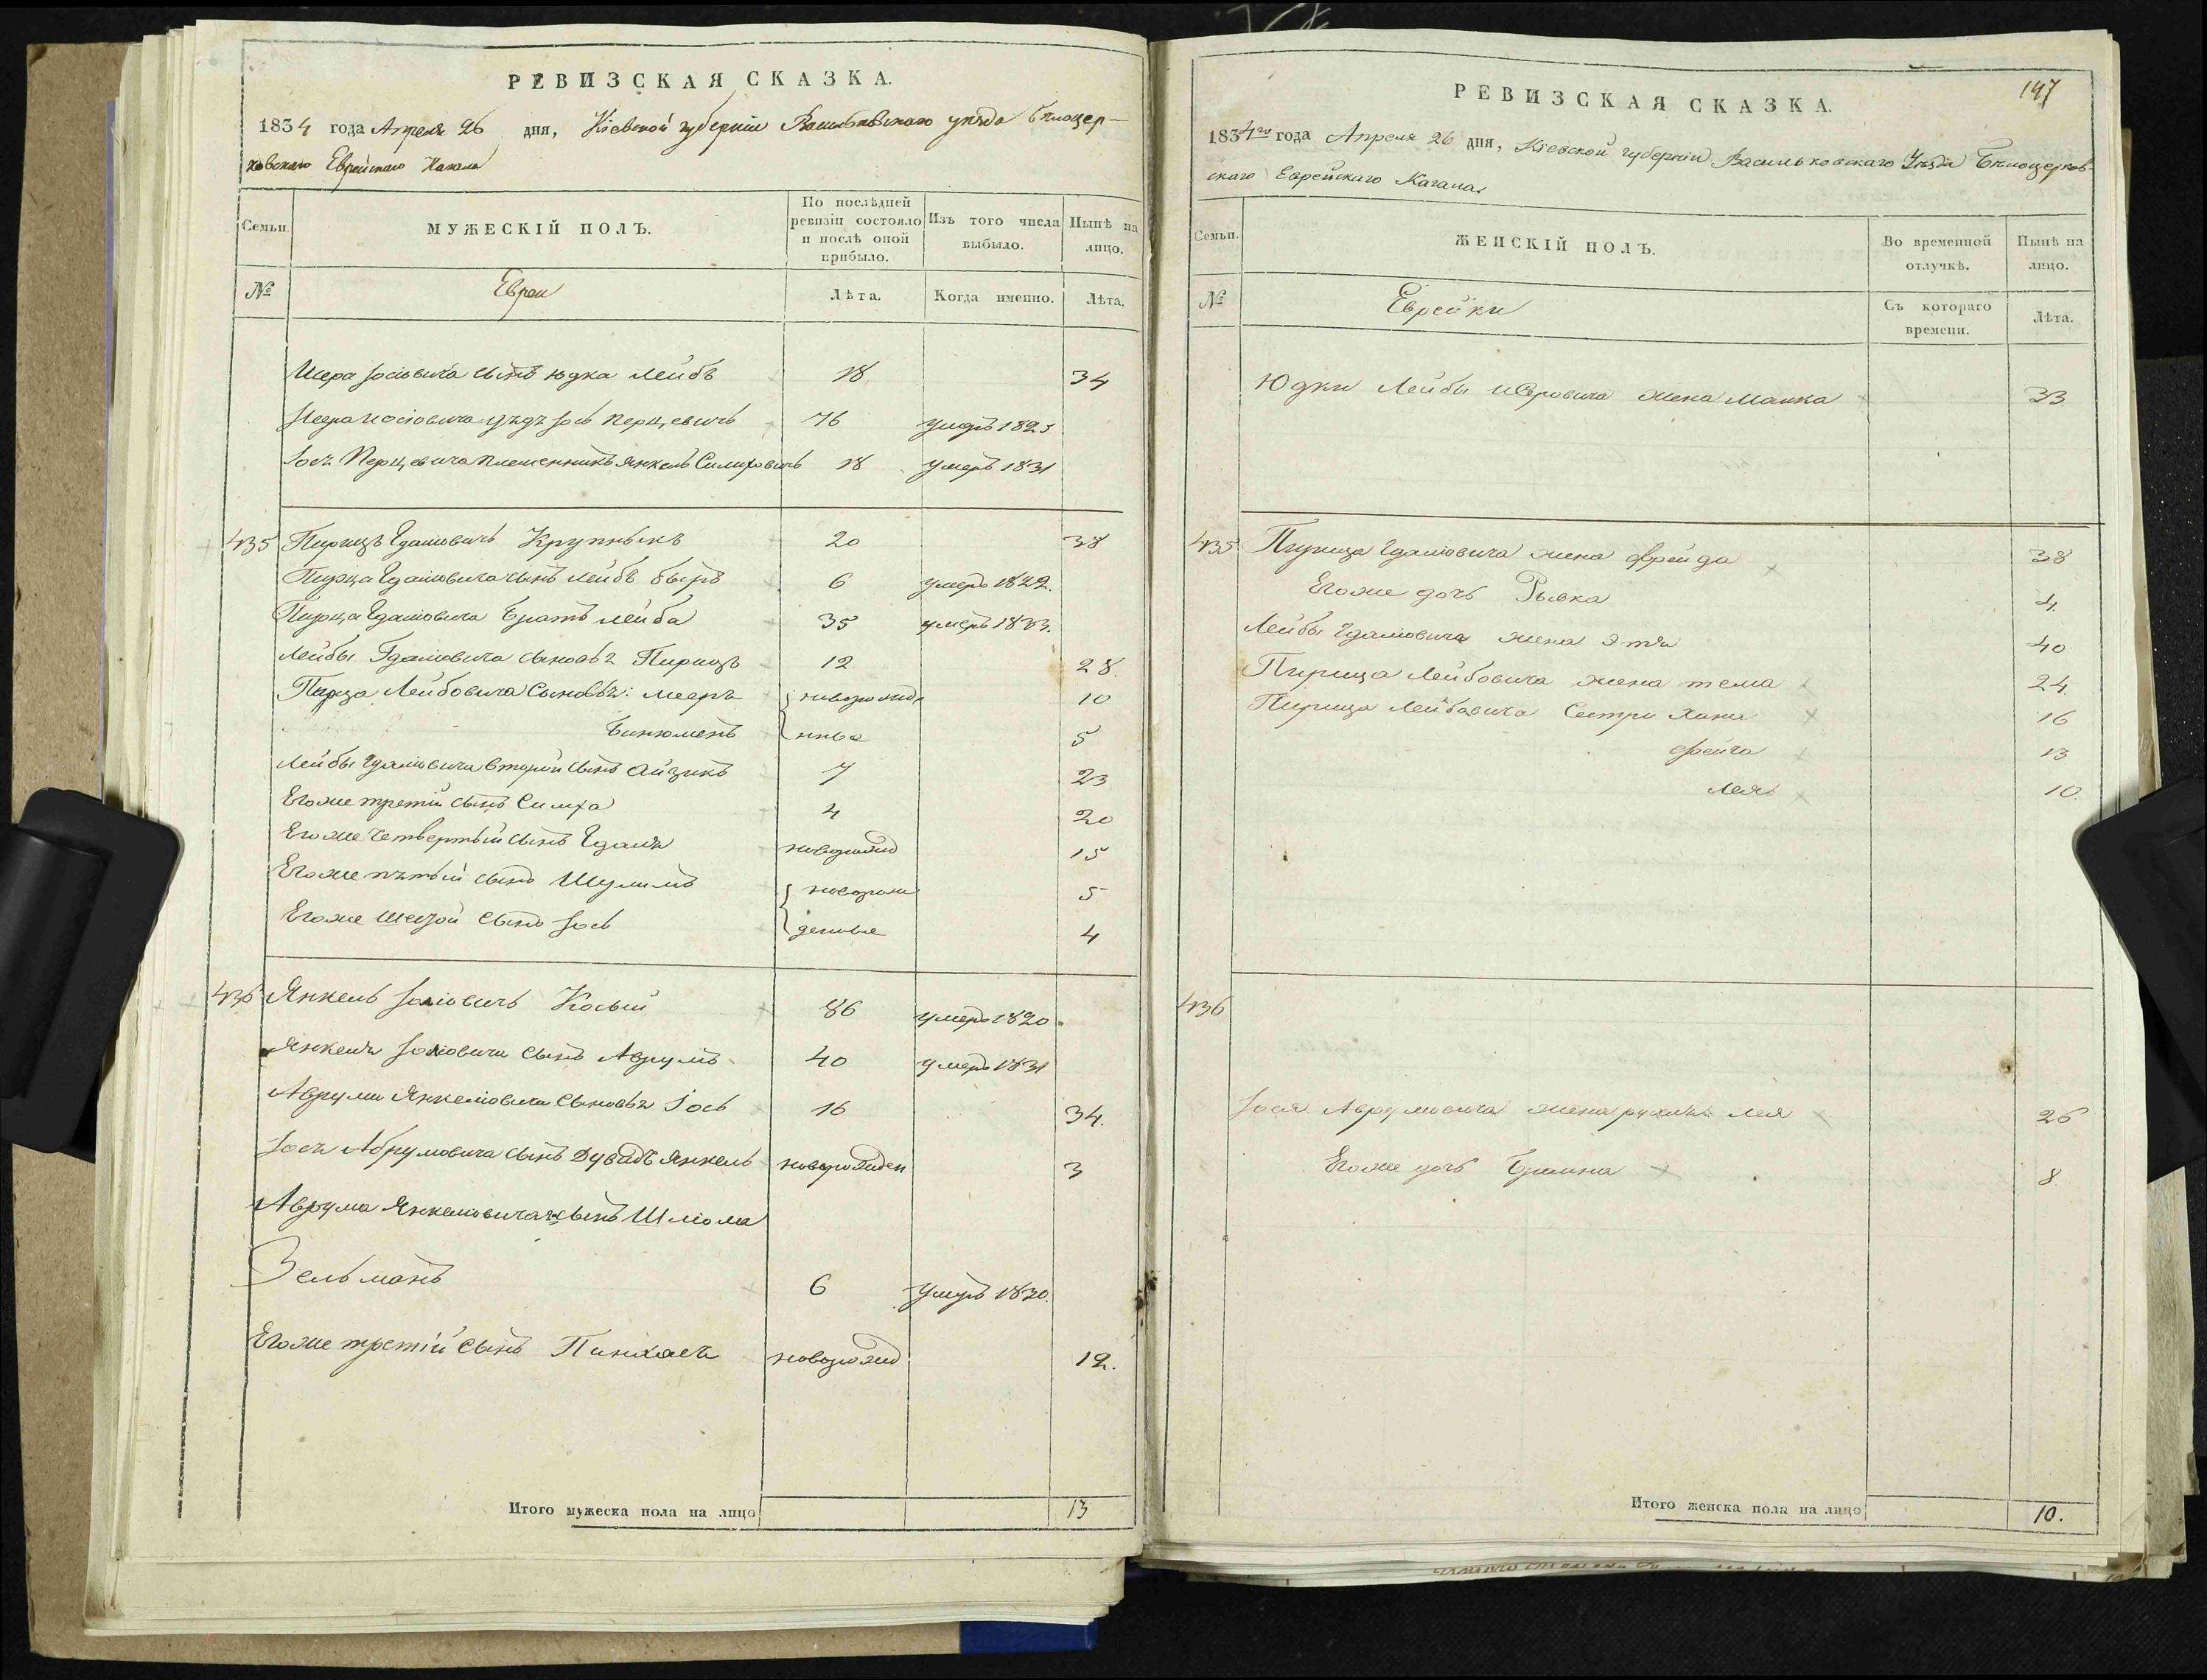 РЕВИЗСКАЯ СКАЗКА.
1834 года Апреля 26 дня, Кіевской губерніи Васильковскаго уѣзда Бѣлоцер-
ковскаго Еврейскаго Кагала
Семьи.
МУЖЕСКІЙ ПОЛЪ.
По послѣдней ревизіи состояло и послѣ оной прибыло.
Изъ того числа выбыло.
Нынѣ на лицо.
№
Евреи
Лѣта.
Когда именно.
Лѣта.
сынъ Юдка Лейбъ 18 34
дѣдъ Іось Перцевичъ 76 умеръ 182
Перцевича племенникъ Янкель 18 умеръ 1831
435 Пирицъ Гдаліовичъ 20 38
Пирица Гдаліовича сынъ Лейбъ Беръ 6 умеръ 1822.
Пирица Гдаліовича братъ Лейба 35 умеръ 1833.
Лейбы Гдаліовича сыновья Пирицъ 12. 28.
Пирца Лейбовича сыновья: Мееръ новорожде 10
Бинюменъ нные 5
Лейбы Гдаліовича второй сынъ Айзикъ 7 23
Егоже третій сынъ Симха 4 20
Егоже четвертый сынъ Гдаля новорожд 15
Егоже пятый сынъ Шулимъ новорож 5
Егоже шестой сынъ Іось денные 4
436 Янкель Косый 86 умеръ 1820.
Янкеля сынъ Аврумъ 40 умеръ 1831
Аврума Янкеліовича сыновья Іось 16 34.
Іося Абрумовича сынъ Янкель новорожден 3
Аврума Янкеліовича сынъ Шліома
Зельманъ 6 умеръ 1830.
Егоже третій сынъ Пинхасъ новорожд 12.
Итого мужеска пола на лицо 13
147
РЕВИЗСКАЯ СКАЗКА.
1834го года Апреля 26 дня, Кіевской губерніи Васильковскаго Уѣзда Бѣлоцерков-
скаго Еврейскаго Кагала
Семьи.
ЖЕНСКІЙ ПОЛЪ.
Во временной отлучкѣ.
Нынѣ на лицо.
№
Еврейки
Съ котораго времени.
Лѣта.
Юдки Лейбы жена Малка 33
435 Пирица Гдаліовича жена Фрейда 38
Егоже дочь Рывка 4
Лейбы Гдаліовича жена Этя 40
Пирица Лейбовича жена Тема 24
Пирица Лейбовича сестри Хана 16
Фейга 13
Лея 10.
436
Іося Аврумовича жена Лея 26
Егоже дочь 8
Итого женска пола на лицо 10.